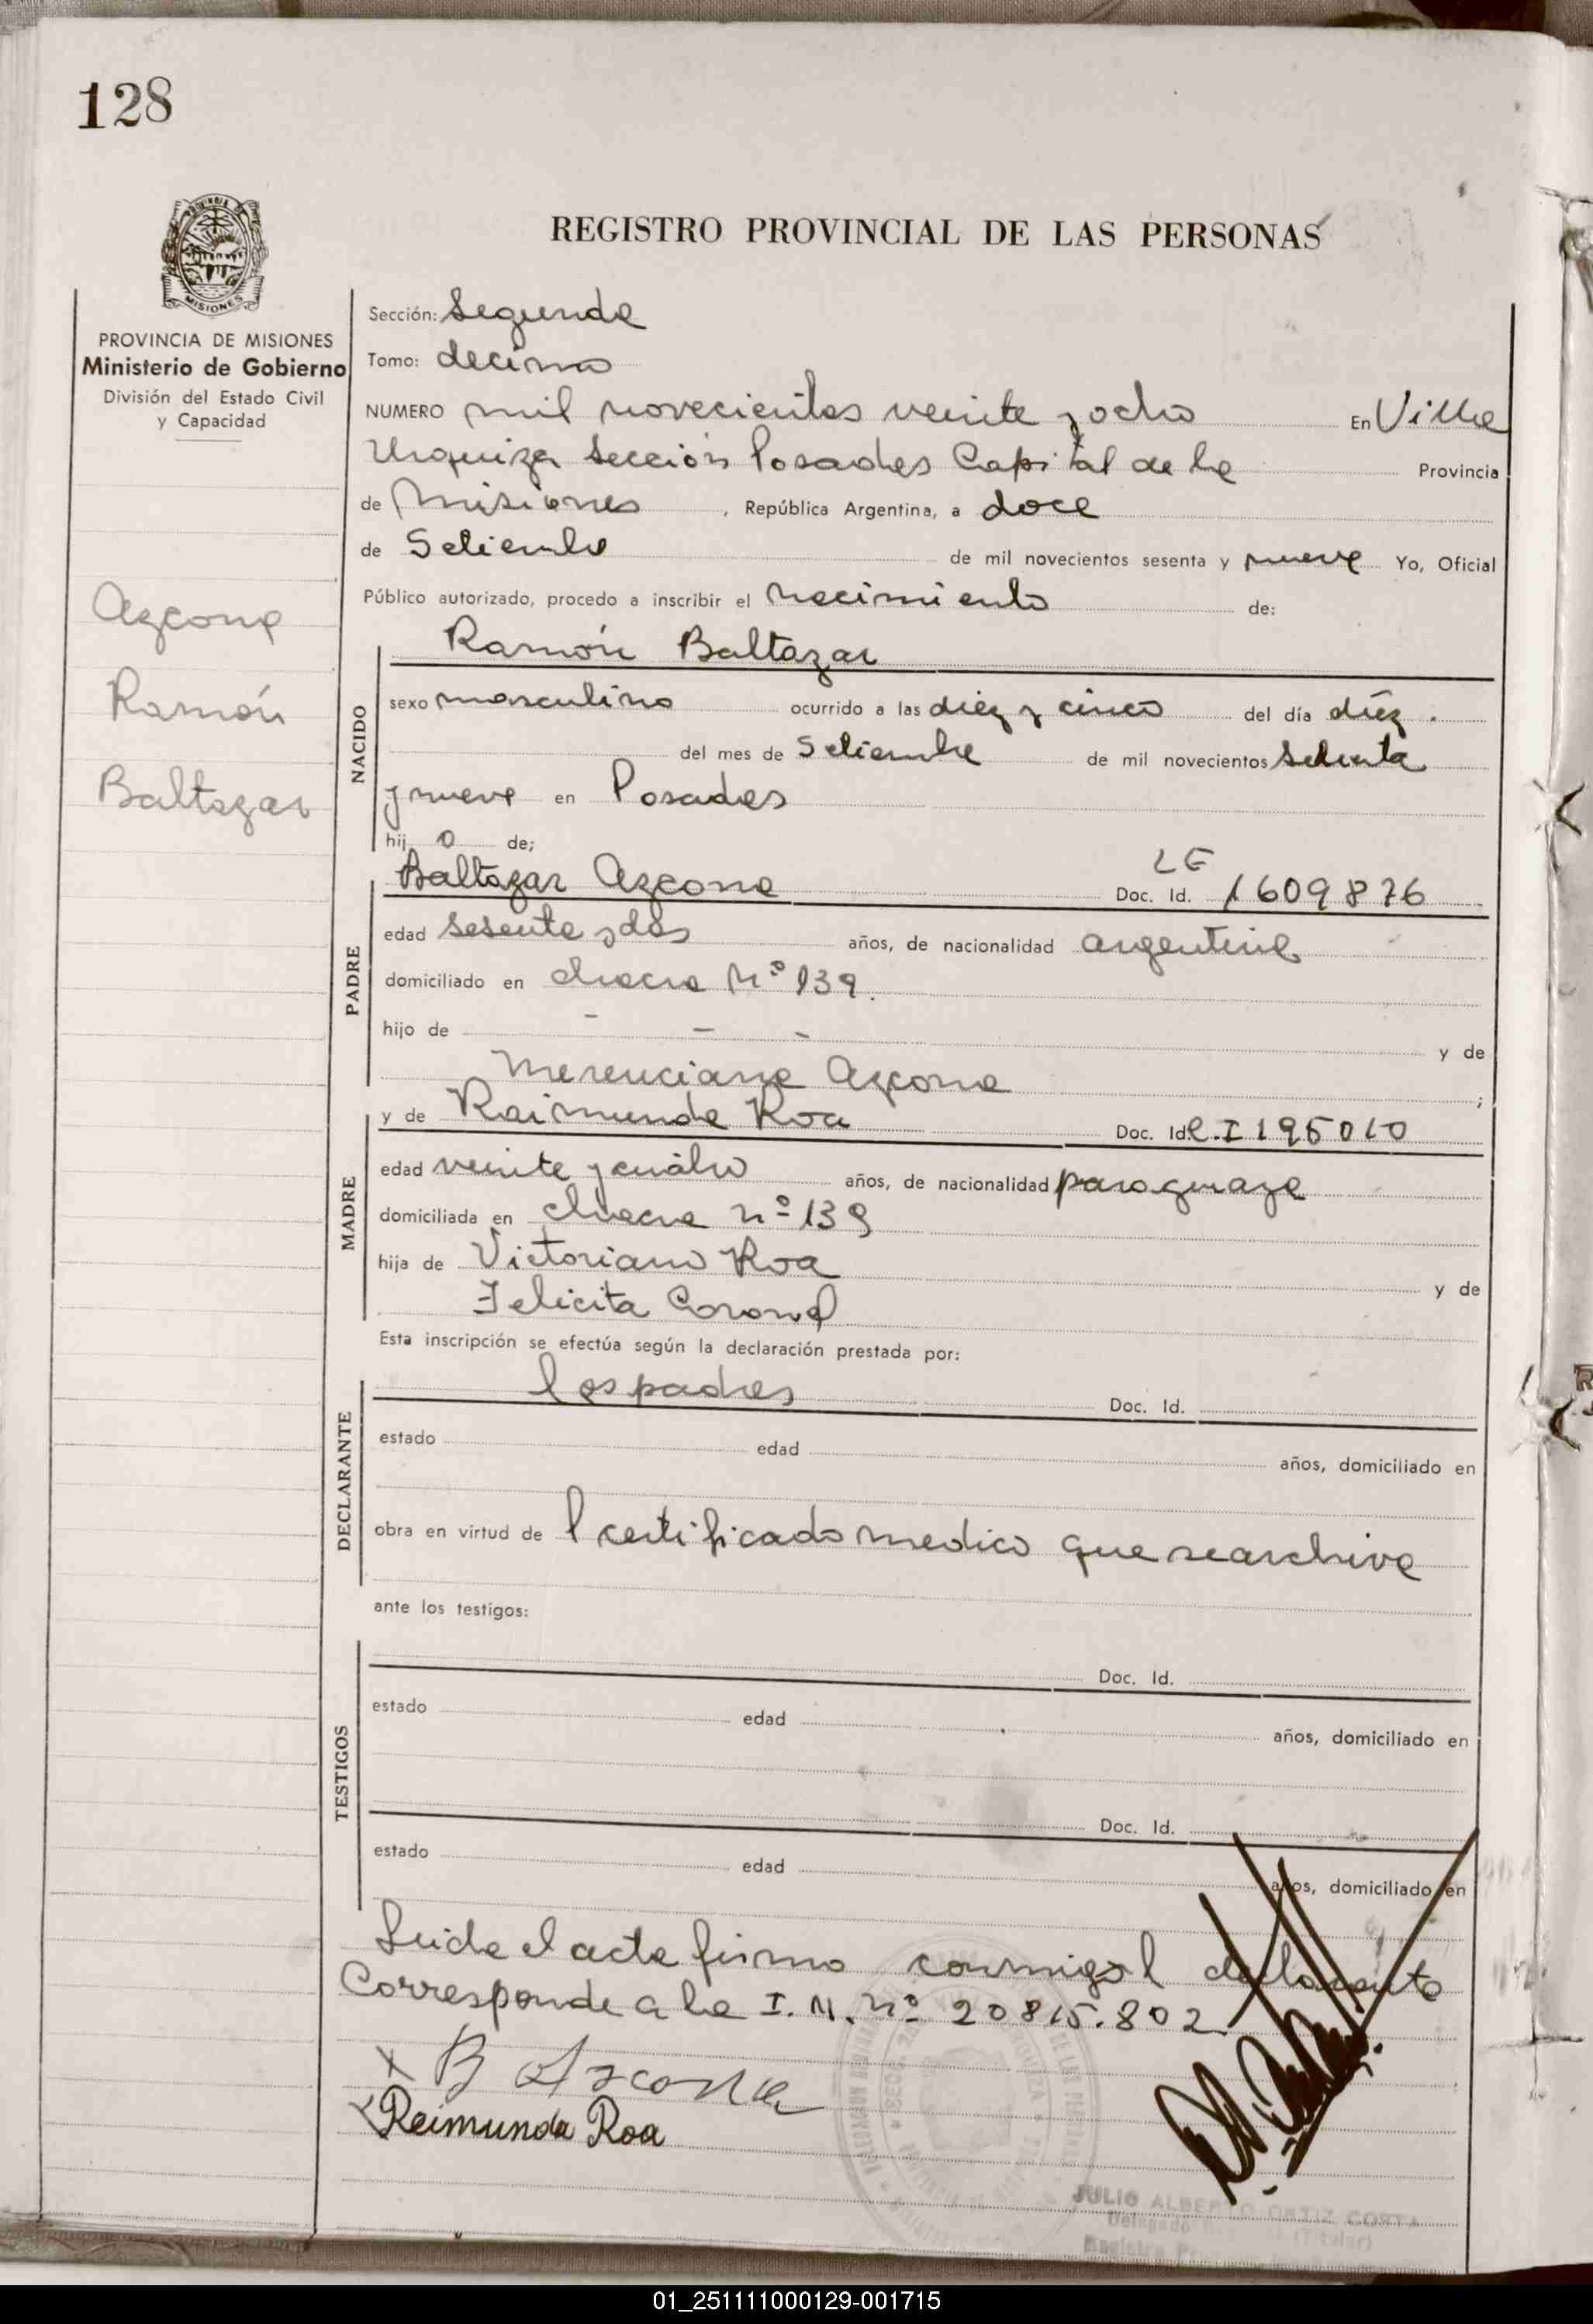 128
REGISTRO PROVINCIAL DE LAS PERSONAS
PROVINCIA DE MISIONES
Ministerio de Gobierno
División del Estado Civil
y Capacidad
Azcona
Ramón
Baltazar
Sección: Segunda
Tomo: decimo
NUMERO mil novecientos veinte y ocho En Villa
Urquiza Sección Posadas Capital de la Provincia
de Misiones, República Argentina, a doce
de Setiembre de mil novecientos sesenta y nueve Yo, Oficial
Público autorizado, procedo a inscribir el nacimiento de:
Ramón Baltazar
NACIDO
sexo masculino ocurrido a las diez y cinco del día diéz.
del mes de Setiembre de mil novecientos sesenta
y nueve en Posadas
hijo de;
Baltazar Azcona Doc. Id. LE 1609876
PADRE
edad sesenta y dos años, de nacionalidad argentina
domiciliado en chacra Nº 139.
hijo de - - - y de
Merenciana Azcona ;
y de Raimunda Roa Doc. Id. C.I 195010
MADRE
edad veinte y cuátro años, de nacionalidad paraguaya
domiciliada en chacra nº 139
hija de Victoriano Roa y de
Felicita Coronel
Esta inscripción se efectúa según la declaración prestada por:
los padres Doc. Id.
DECLARANTE
estado edad años, domiciliado en
obra en virtud de l certificado medico que se archiva
ante los testigos:
Doc. Id.
TESTIGOS
estado edad años, domiciliado en
Doc. Id.
estado edad años, domiciliado en
Leida el acta firma conmigo l declarante
Corresponde a la I. N. nº 20815.802
x B Azcona
x Reimunda Roa
JULIO ALBERTO ORTIZ COSTA
Delegado (Titular)
01_251111000129-001715